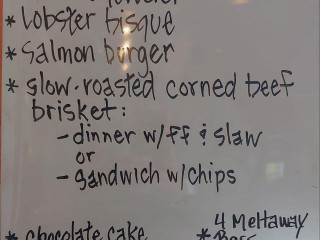 * lobster bisque
* salmon burger
* slow-roasted corned beef
brisket:
- dinner w/ff & slaw
or
- sandwich w/chips
* chocolate cake
* 4 Meltaway
Bars